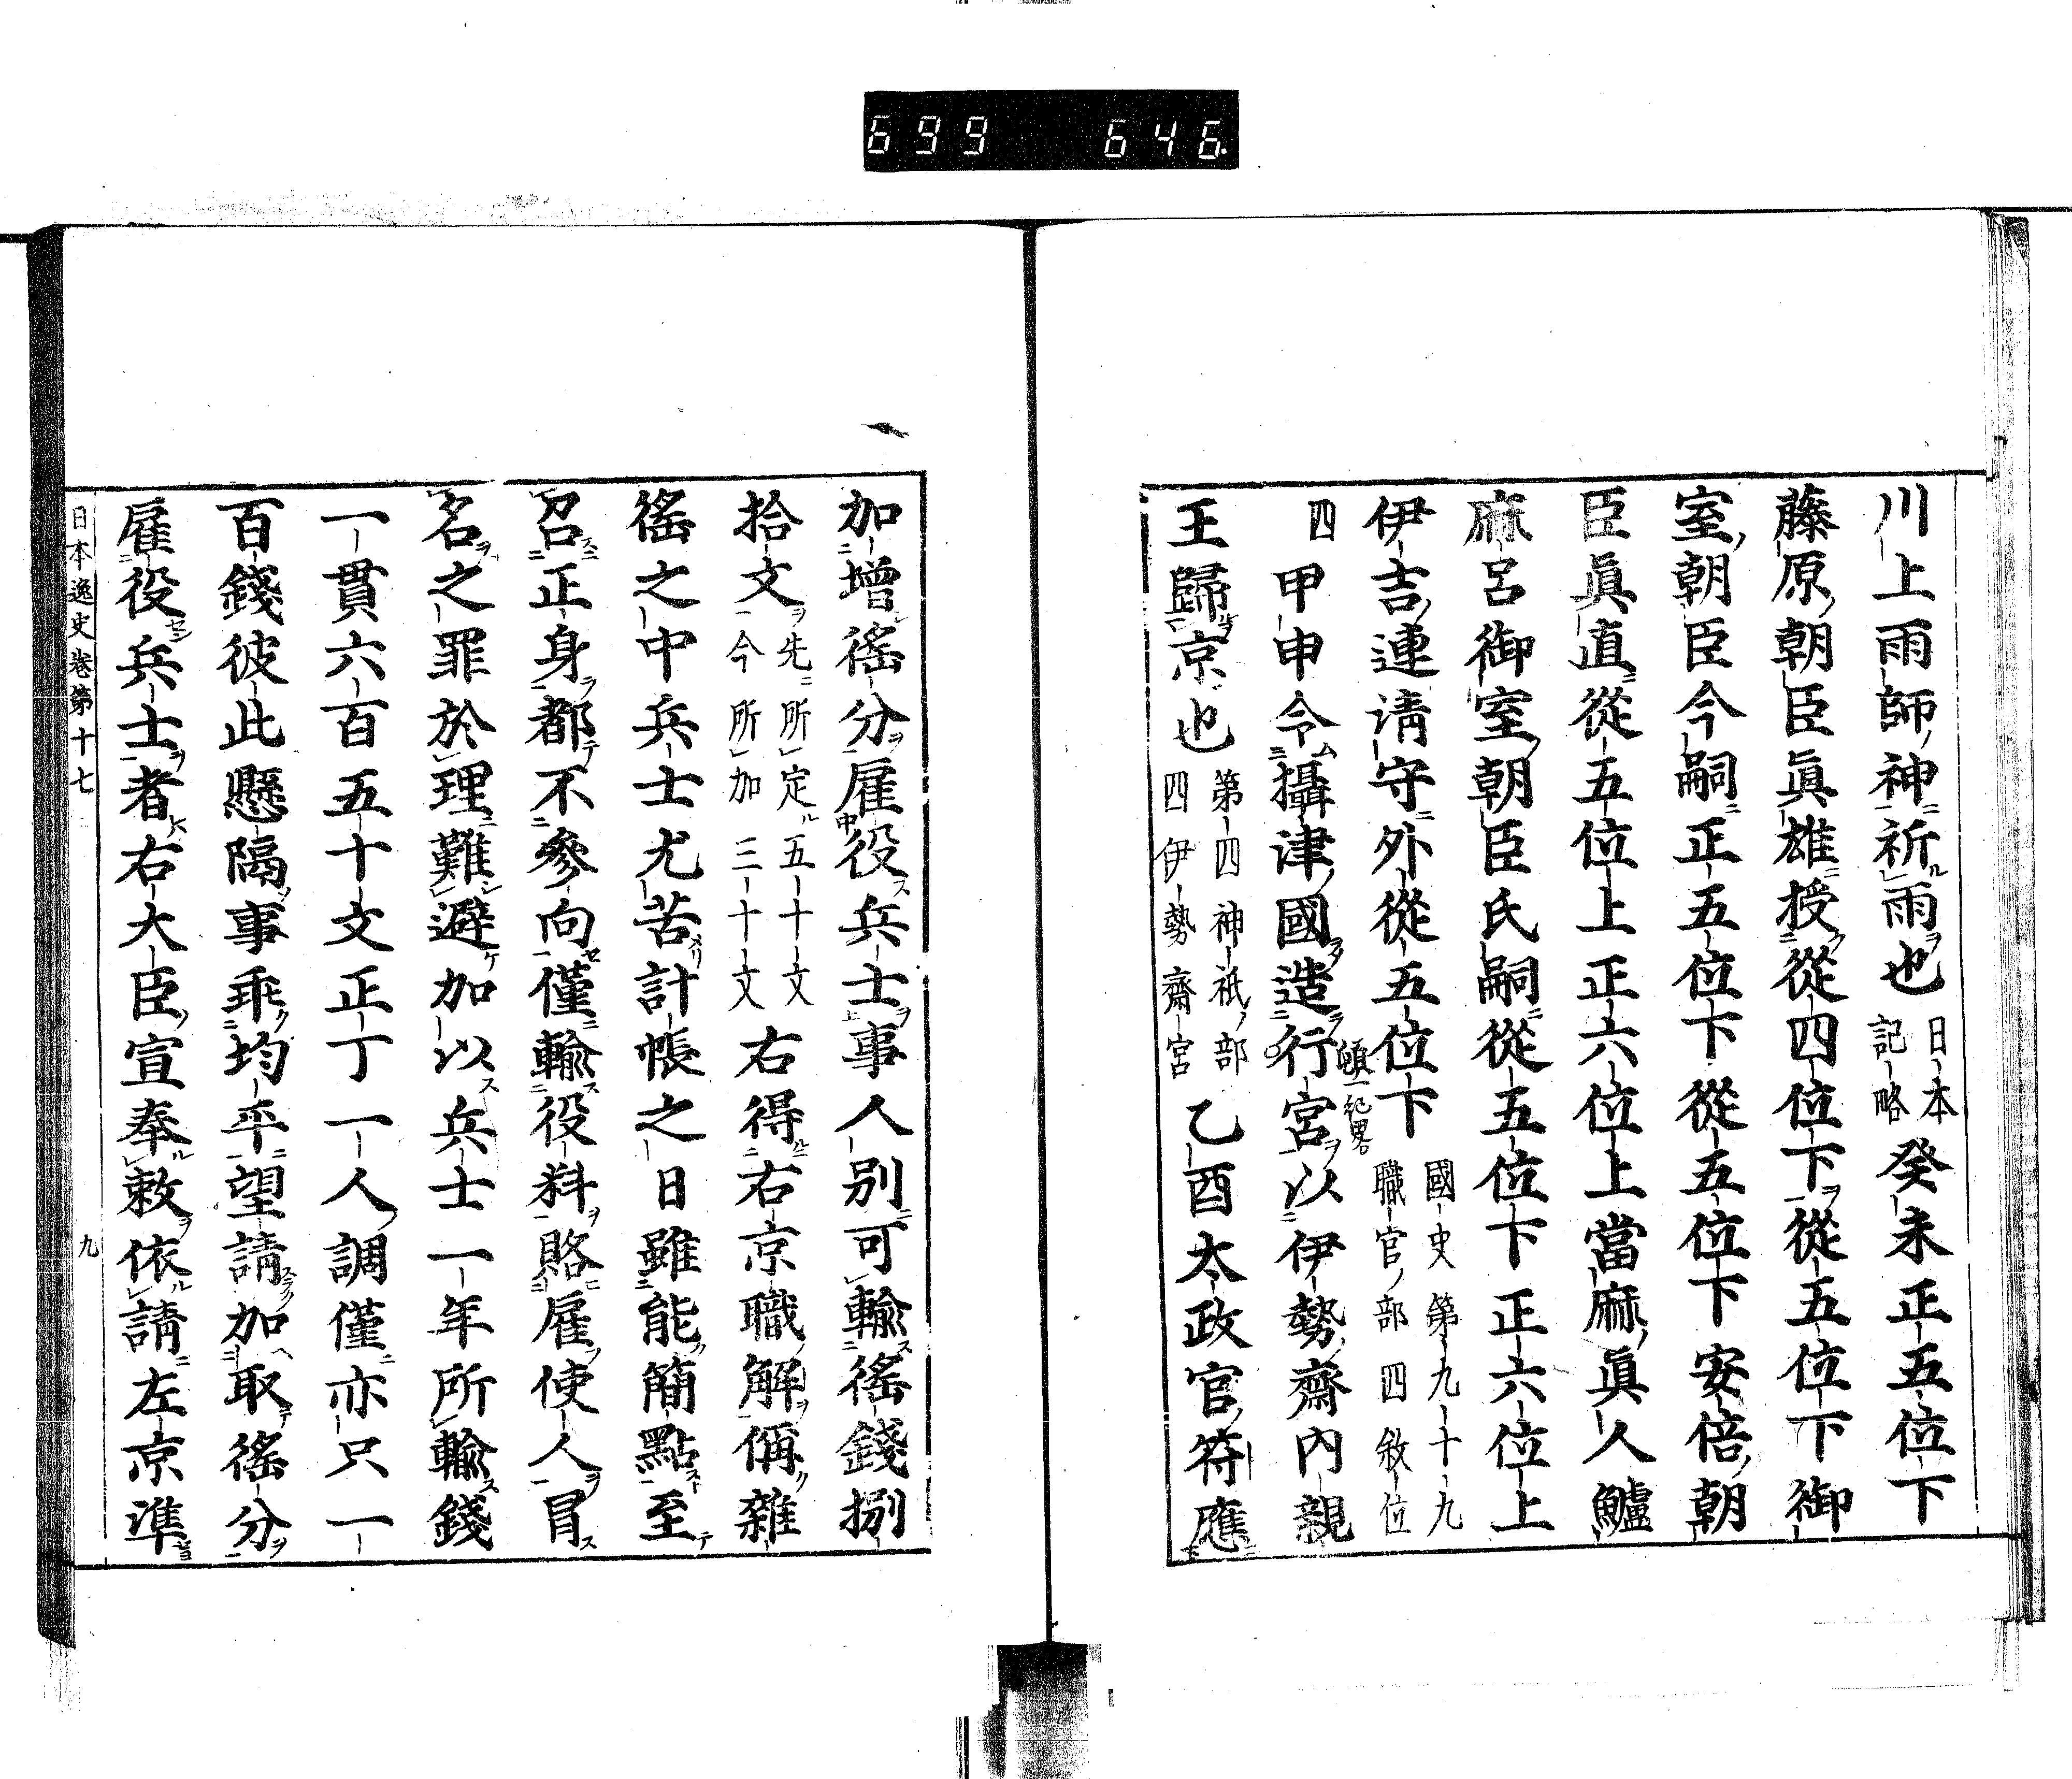 699 646
川上雨師神祈雨也日本記略癸未正五位下
藤原朝臣眞雄授從四位下從五位下御
室朝臣今嗣正五位下從五位下安倍朝
臣眞直從五位上正六位上當麻眞人鱸
麻呂御室朝臣氏嗣從五位下正六位上
伊吉連淸守外從五位下國史第九十九職官部四敘位
四甲申令攝津國造行宮以伊勢齋內親
頓一紀畧
王歸京也第四神祇部四伊勢齋宮乙酉太政官符應
加增徭分雇役兵士事人別可輸徭錢捌
拾文先所定五十文今所加三十文右得右京職解偁雜
徭之中兵士尤苦計帳之日雖能簡點至
召正身都不參向僅輸役料賂雇使人冒
名之罪於理難避加以兵士一年所輸錢
一貫六百五十文正丁一人調僅亦只一
百錢彼此懸隔事乖均平望請加取徭分
雇役兵士者右大臣宣奉敕依請左京準
日本逸史卷第十七 九